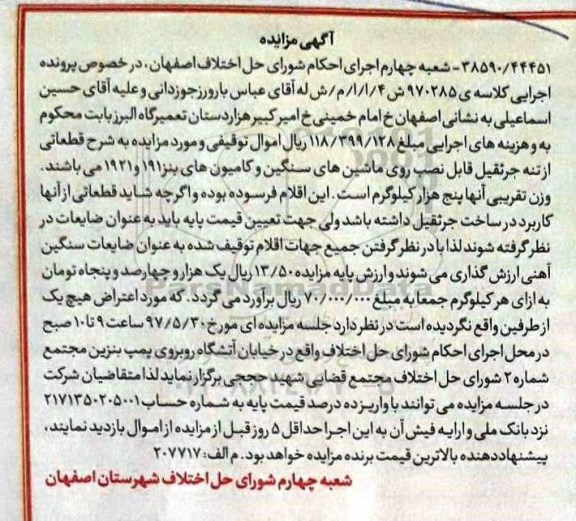 آگهی مزایده
۳۸۵۹۰/۴۴۴۵۱- شعبه چهارم اجرای احکام شورای حل اختلاف اصفهان، در خصوص پرونده
اجرایی کلاسه ی ۹۷۰۲۸۵ ش۴/ا/ا/م/ش له آقای عباس بارورز جوزدانی و علیه آقای حسین
اسماعیلی به نشانی اصفهان خ امام خمینی خ امیرکبیر هزاردستان تعمیرگاه البرز بابت محکوم
به و هزینه های اجرایی مبلغ ۱۱۸/۳۹۹/۱۲۸ ریال اموال توقیفی و مورد مزایده به شرح قطعاتی
از تنه جرثقیل قابل نصب روی ماشین های سنگین و کامیون های بنز ۱۹۱ و ۱۹۲۱ می باشند.
وزن تقریبی آنها پنج هزار کیلوگرم است. این اقلام فرسوده بوده و اگرچه شاید قطعاتی از آنها
کاربرد در ساخت جرثقیل داشته باشد ولی جهت تعیین قیمت پایه باید به عنوان ضایعات در
نظر گرفته شوند لذا با در نظر گرفتن جمیع جهات اقلام توقیف شده به عنوان ضایعات سنگین
آهنی ارزش گذاری می شوند و ارزش پایه مزایده ۱۳/۵۰ ریال یک هزار و چهارصد و پنجاه تومان
به ازای هر کیلوگرم جمعا به مبلغ ۷۰/۰۰۰/۰۰۰ ریال برآورد می گردد. که مورد اعتراض هیچ یک
از طرفین واقع نگردیده است در نظر دارد جلسه مزایده ای مورخ ۹۷/۵/۳۰ ساعت ۹ تا ۱۰ صبح
در محل اجرای احکام شورای حل اختلاف واقع در خیابان آتشگاه روبروی پمپ بنزین مجتمع
شماره ۲ شورای حل اختلاف مجتمع قضایی شهید حججی برگزار نماید لذا متقاضیان شرکت
در جلسه مزایده می توانند با واریز ده درصد قیمت پایه به شماره حساب ۲۱۷۱۳۵۰۲۰۵۰۰۱
نزد بانک ملی و ارایه فیش آن به این اجرا حداقل ۵ روز قبل از مزایده از اموال بازدید نمایند،
پیشنهاددهنده بالاترین قیمت برنده مزایده خواهد بود. م الف: ۲۰۷۷۱۷
شعبه چهارم شورای حل اختلاف شهرستان اصفهان
ParsNamadData